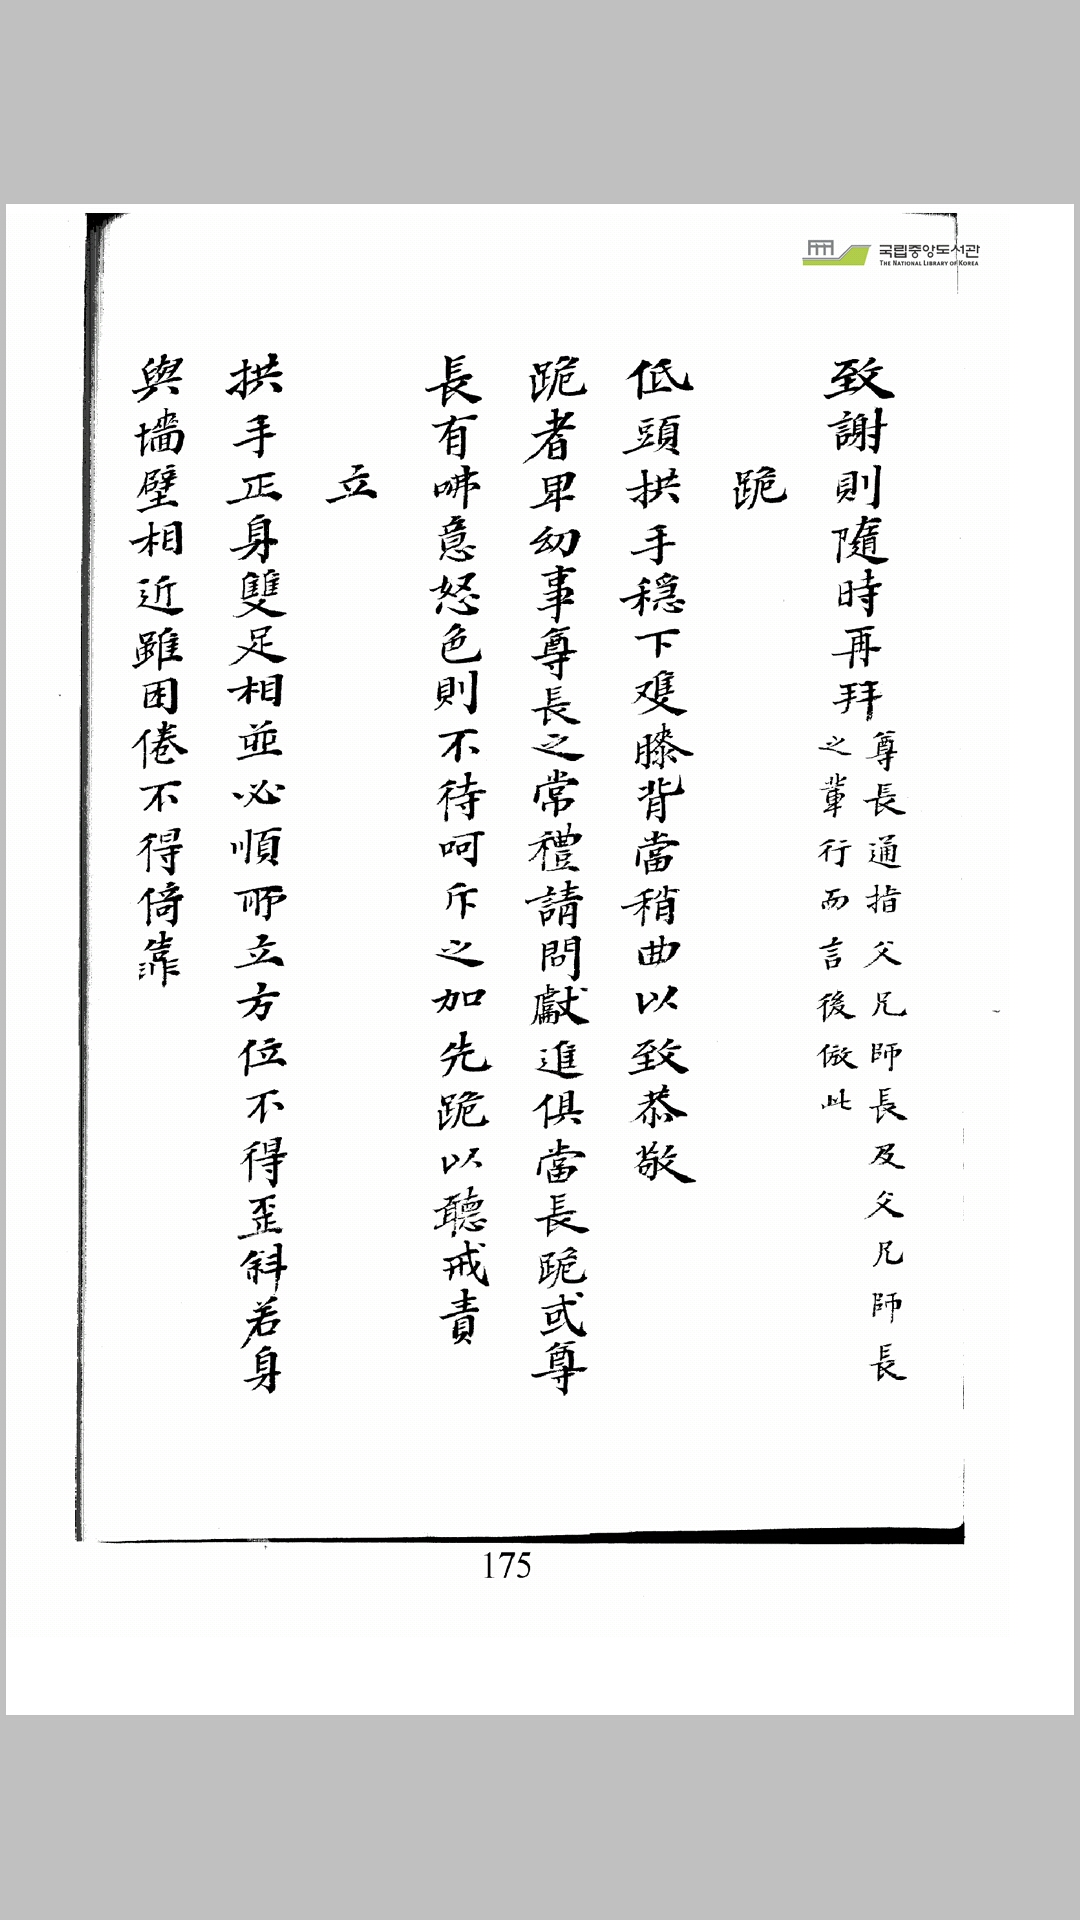 국립중앙도서관
THE NATIONAL LIBRARY OF KOREA
致謝則隨時再拜尊長通指父兄師長及父兄師長
之輩行而言後倣此
跪
低頭拱手穩下雙膝背當稍曲以致恭敬
跪者卑幼事尊長之常禮請問獻進俱當長跪或尊
長有咈意怒色則不待呵斥之加先跪以聽戒責
立
拱手正身雙足相並必順所立方位不得歪斜若身
與墻壁相近雖困倦不得倚靠
175